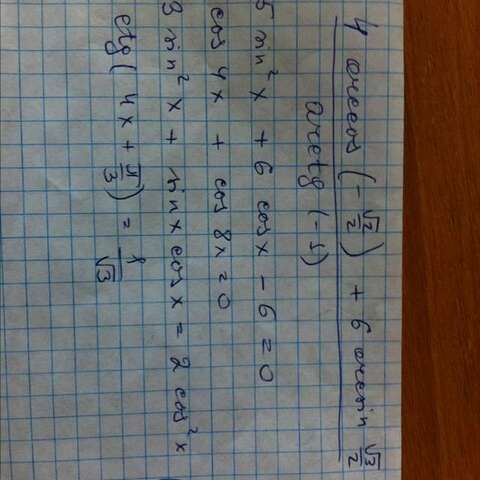 4 arccos (- √2/2) + 6 arcsin √3/2
arctg (-1)
5 sin² x + 6 cos x - 6 = 0
cos 4x + cos 8x = 0
3 sin² x + sin x cos x = 2 cos² x
ctg( 4x + π/3 ) = 1/√3